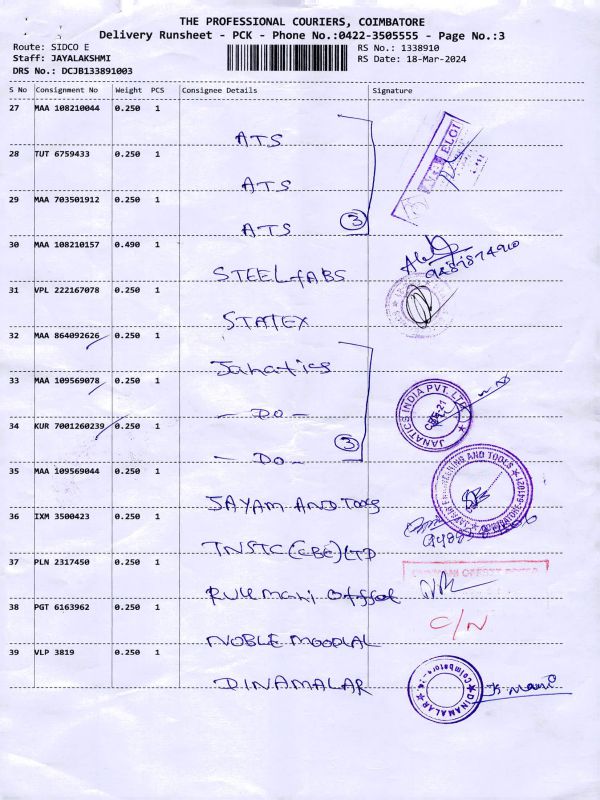 THE PROFESSIONAL COURIERS, COIMBATORE
Delivery Runsheet - PCK - Phone No.:0422-3505555 - Page No.:3
Route: SIDCO E
Staff: JAYALAKSHMI
DRS No.: DCJB133891003
RS No.: 1338910
RS Date: 18-Mar-2024
S No Consignment No Weight PCS Consignee Details Signature
27 MAA 108210044 0.250 1 ATS
ELGI
28 TUT 6759433 0.250 1 ATS
29 MAA 703501912 0.250 1 ATS
3
30 MAA 108210157 0.490 1 STEELfABS
31 VPL 222167078 0.250 1 STATEX
32 MAA 864092626 0.250 1 Janatics
33 MAA 109569078 0.250 1 - DO -
JANATICS INDIA PVT. LTD.
34 KUR 7001260239 0.250 1 - DO -
3
35 MAA 109569044 0.250 1 JAYAM AND Tools
JAYAM ENGINEERING AND TOOLS
COIMBATORE-641021
36 IXM 3500423 0.250 1 TNSTC (CBE) LTD
37 PLN 2317450 0.250 1 Rukmani Offset
38 PGT 6163962 0.250 1 NOBLE MOODLAL
C/N
39 VLP 3819 0.250 1 DINAMALAR
DINAMALAR
Coimbatore-14
K. Mani